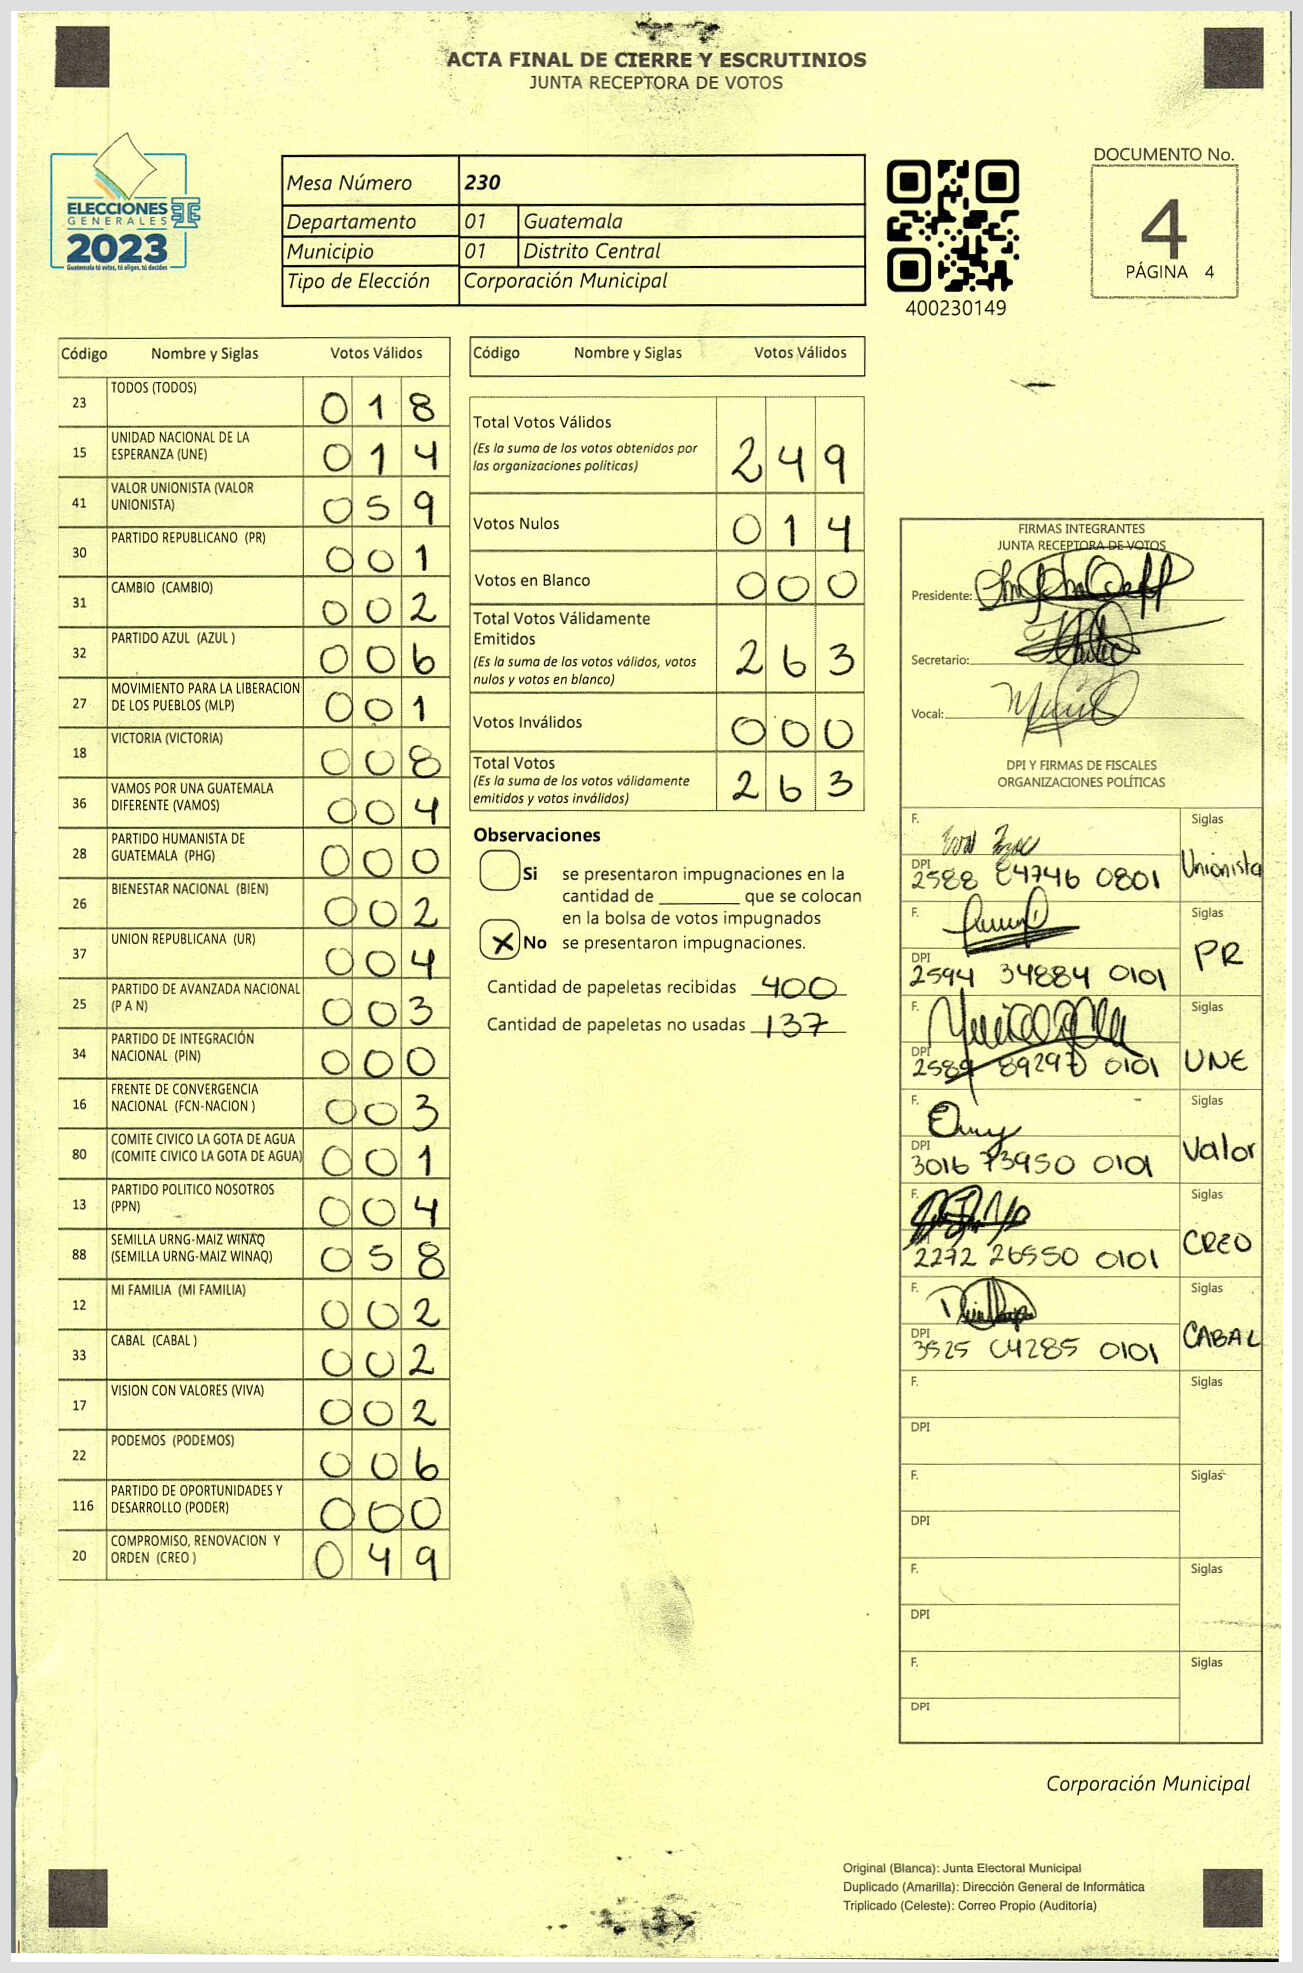 ACTA FINAL DE CIERRE Y ESCRUTINIOS
JUNTA RECEPTORA DE VOTOS
ELECCIONES
GENERALES
2023
Guatemala tú votas, tú eliges, tú decides
Mesa Número 230
Departamento 01 Guatemala
Municipio 01 Distrito Central
Tipo de Elección Corporación Municipal
400230149
DOCUMENTO No.
4
PÁGINA 4
Código Nombre y Siglas Votos Válidos
23 TODOS (TODOS) 018
15 UNIDAD NACIONAL DE LA
ESPERANZA (UNE) 014
41 VALOR UNIONISTA (VALOR
UNIONISTA) 059
30 PARTIDO REPUBLICANO (PR) 001
31 CAMBIO (CAMBIO) 002
32 PARTIDO AZUL (AZUL ) 006
27 MOVIMIENTO PARA LA LIBERACION
DE LOS PUEBLOS (MLP) 001
18 VICTORIA (VICTORIA) 008
36 VAMOS POR UNA GUATEMALA
DIFERENTE (VAMOS) 004
28 PARTIDO HUMANISTA DE
GUATEMALA (PHG) 000
26 BIENESTAR NACIONAL (BIEN) 002
37 UNION REPUBLICANA (UR) 004
25 PARTIDO DE AVANZADA NACIONAL
(P A N) 003
34 PARTIDO DE INTEGRACIÓN
NACIONAL (PIN) 000
16 FRENTE DE CONVERGENCIA
NACIONAL (FCN-NACION ) 003
80 COMITE CIVICO LA GOTA DE AGUA
(COMITE CIVICO LA GOTA DE AGUA) 001
13 PARTIDO POLITICO NOSOTROS
(PPN) 004
88 SEMILLA URNG-MAIZ WINAQ
(SEMILLA URNG-MAIZ WINAQ) 058
12 MI FAMILIA (MI FAMILIA) 002
33 CABAL (CABAL ) 002
17 VISION CON VALORES (VIVA) 002
22 PODEMOS (PODEMOS) 006
116 PARTIDO DE OPORTUNIDADES Y
DESARROLLO (PODER) 000
20 COMPROMISO, RENOVACION Y
ORDEN (CREO ) 049
Código Nombre y Siglas Votos Válidos
Total Votos Válidos
(Es la suma de los votos obtenidos por
las organizaciones políticas) 249
Votos Nulos 014
Votos en Blanco 000
Total Votos Válidamente
Emitidos
(Es la suma de los votos válidos, votos
nulos y votos en blanco) 263
Votos Inválidos 000
Total Votos
(Es la suma de los votos válidamente
emitidos y votos inválidos) 263
Observaciones
Si se presentaron impugnaciones en la
cantidad de ________ que se colocan
en la bolsa de votos impugnados
X No se presentaron impugnaciones.
Cantidad de papeletas recibidas 400
Cantidad de papeletas no usadas 137
FIRMAS INTEGRANTES
JUNTA RECEPTORA DE VOTOS
Presidente:
Secretario:
Vocal:
DPI Y FIRMAS DE FISCALES
ORGANIZACIONES POLÍTICAS
F. Siglas
DPI 2588 84746 0801 Unionista
F. Siglas
DPI 2594 34884 0101 PR
F. Siglas
DPI 2589 89297 0101 UNE
F. Siglas
DPI 3016 73950 0101 Valor
F. Siglas
2272 26550 0101 CREO
F. Siglas
DPI 3525 04285 0101 CABAL
F. Siglas
DPI
F. Siglas
DPI
F. Siglas
DPI
F. Siglas
DPI
Corporación Municipal
Original (Blanca): Junta Electoral Municipal
Duplicado (Amarilla): Dirección General de Informática
Triplicado (Celeste): Correo Propio (Auditoría)